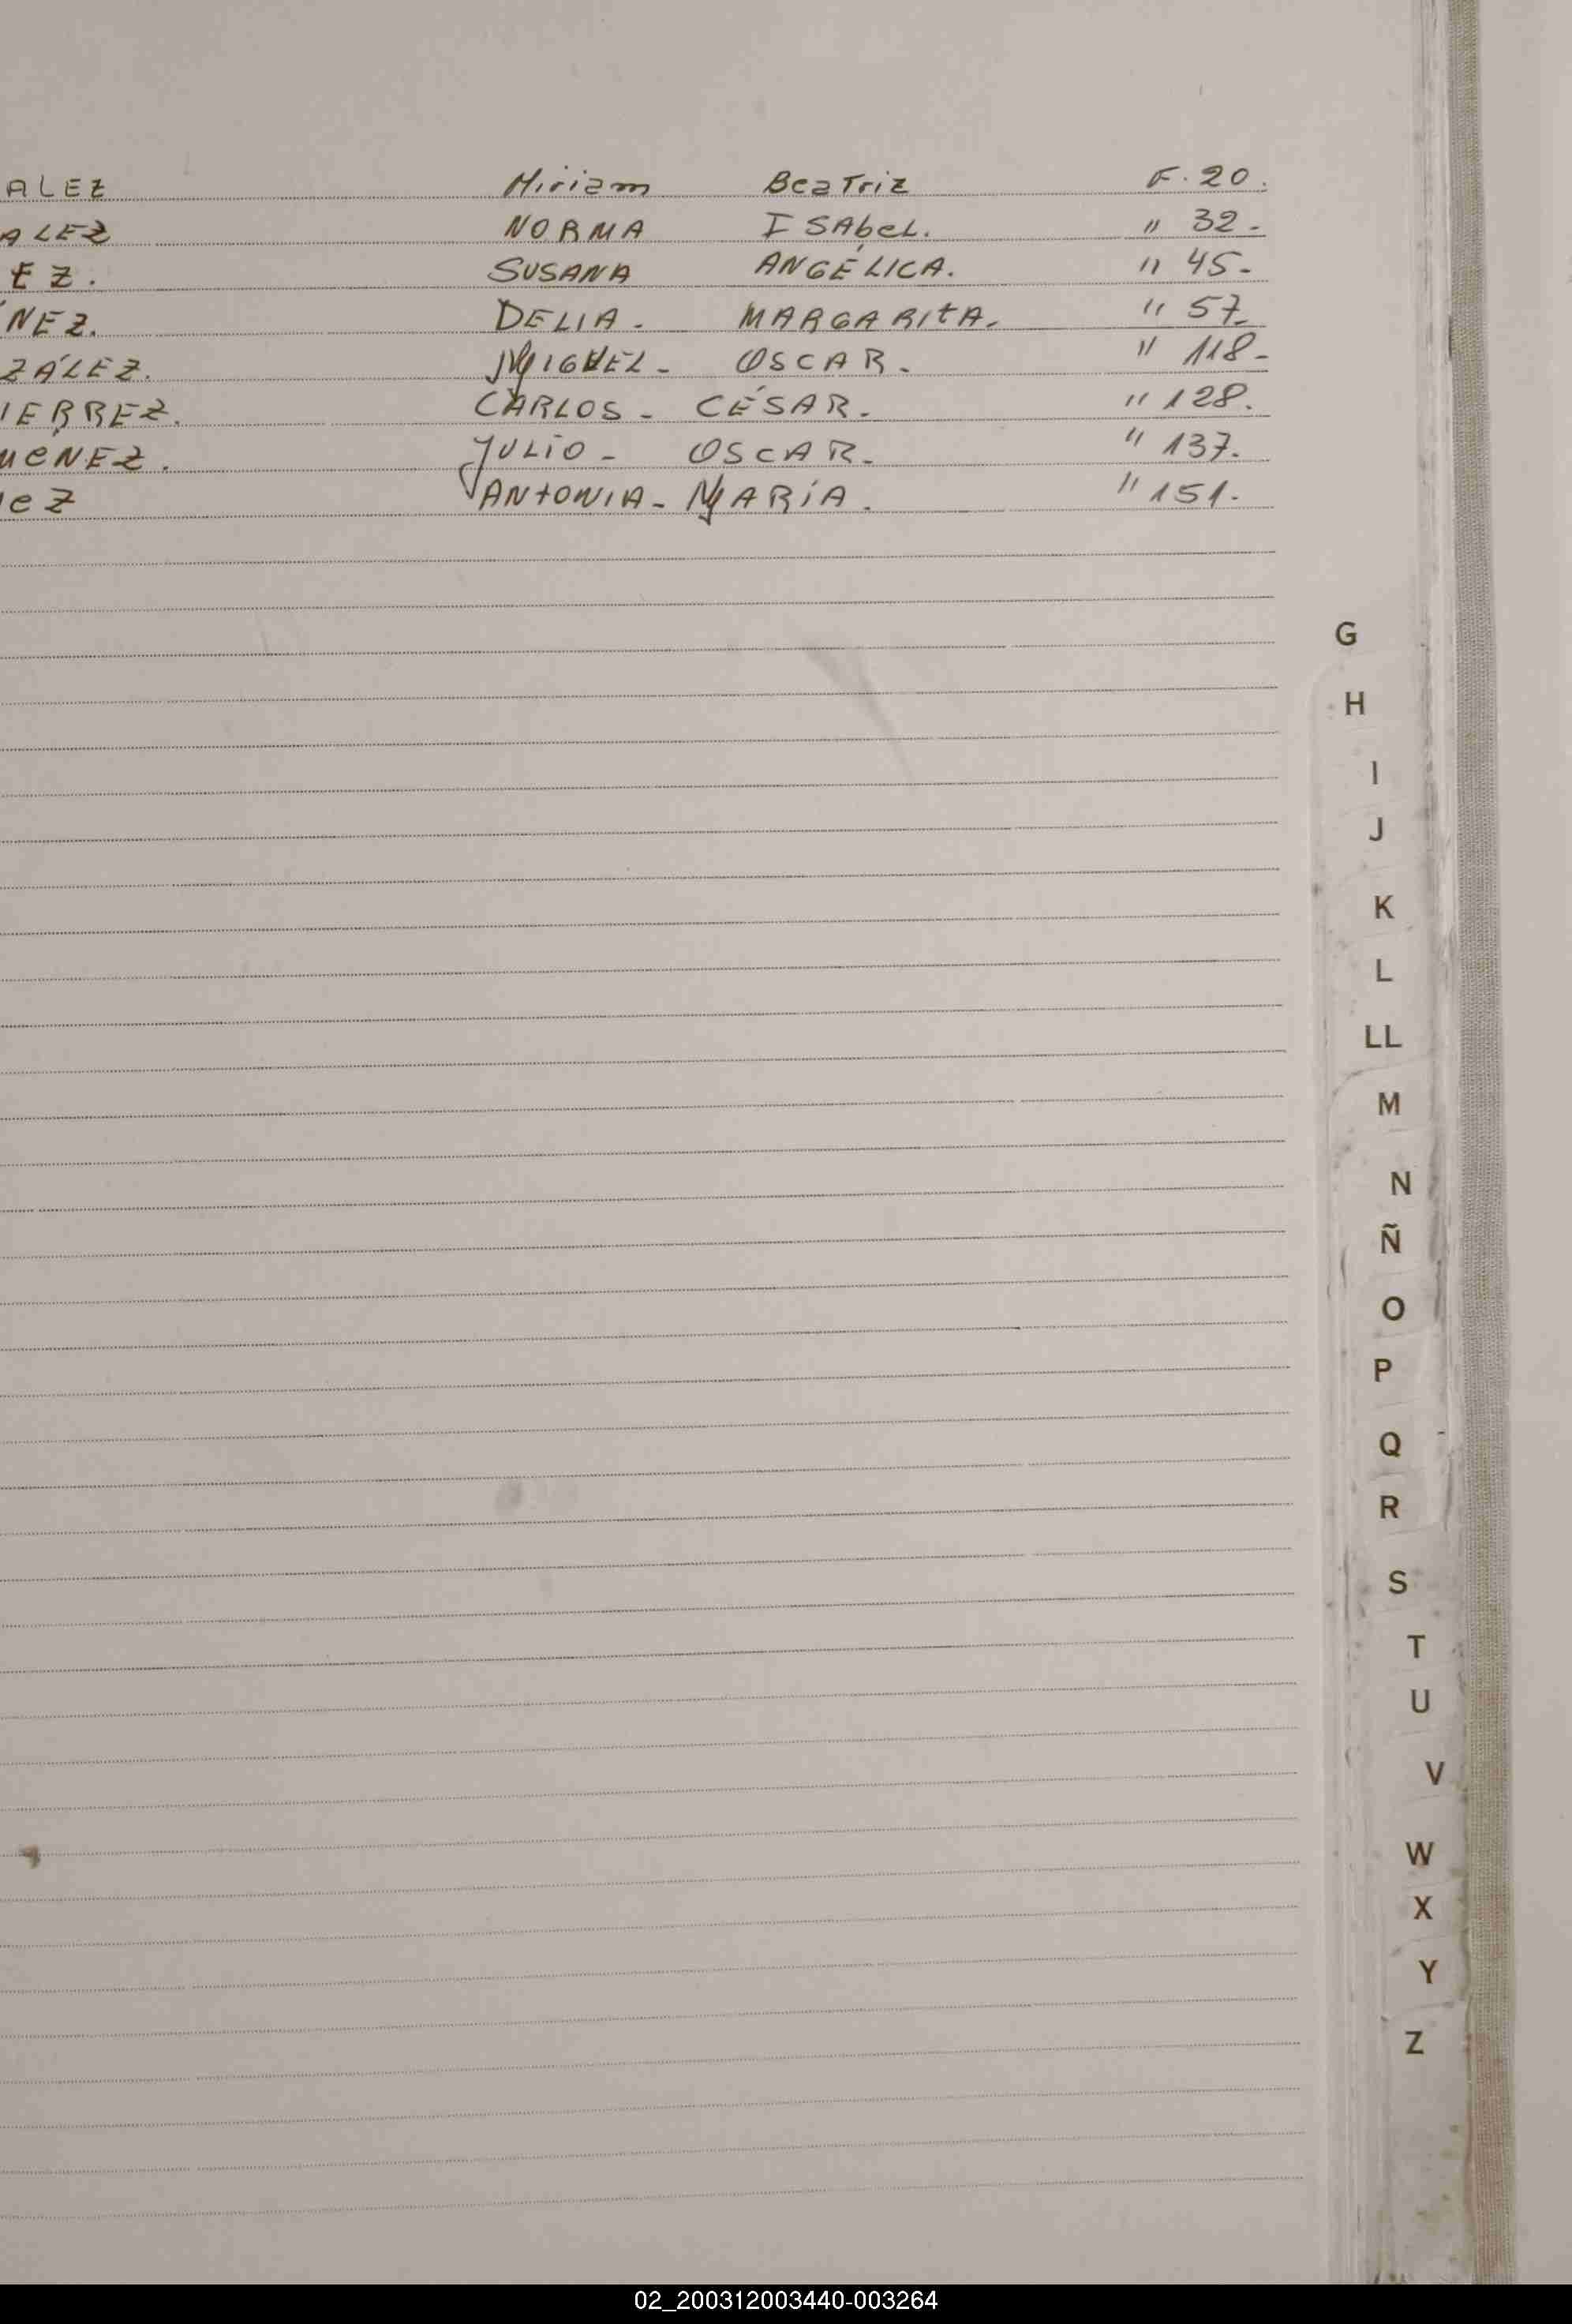 ALEZ Miriam Beatriz F. 20.
ALEZ NORMA ISAbeL. " 32-
EZ. SUSANA ANGÉLICA. " 45-
NEZ. DELIA- MARGARITA. " 57-
ZÁLEZ. MIGUEL- OSCAR. " 118-
IERREZ. CARLOS- CÉSAR. " 128.
MENEZ. JULIO- OSCAR. " 137.
eZ ANTONIA- MARÍA. " 151.
G
H
I
J
K
L
LL
M
N
Ñ
O
P
Q
R
S
T
U
V
W
X
Y
Z
02_200312003440-003264